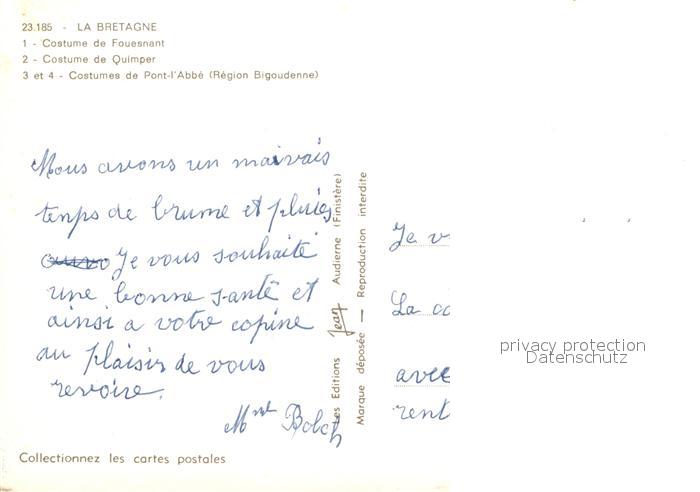 23.185 - LA BRETAGNE
1 - Costume de Fouesnant
2 - Costume de Quimper
3 et 4 - Costumes de Pont-l'Abbé (Région Bigoudenne)
Nous avons un maivais
temps de brume et pluies
Je vous souhaite
une bonne santé et
ainsi a votre copine
au plaisir de vous
revoire.
Mme
Collectionnez les cartes postales
Les Editions Jean Audierne (Finistère)
Marque déposée — Reproduction interdite
Je v
La
avec
rent
privacy protection
Datenschutz